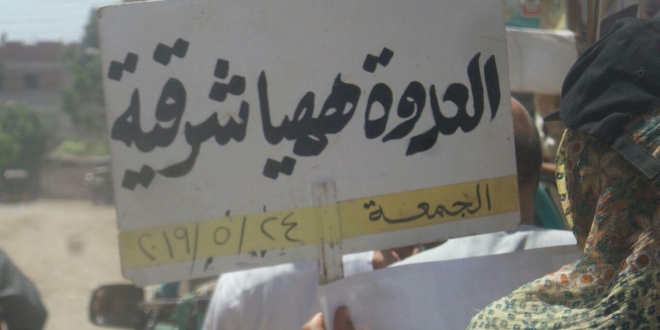 العدوة ههيا شرقية
الجمعة ٢٤/٥/٢٠١٩